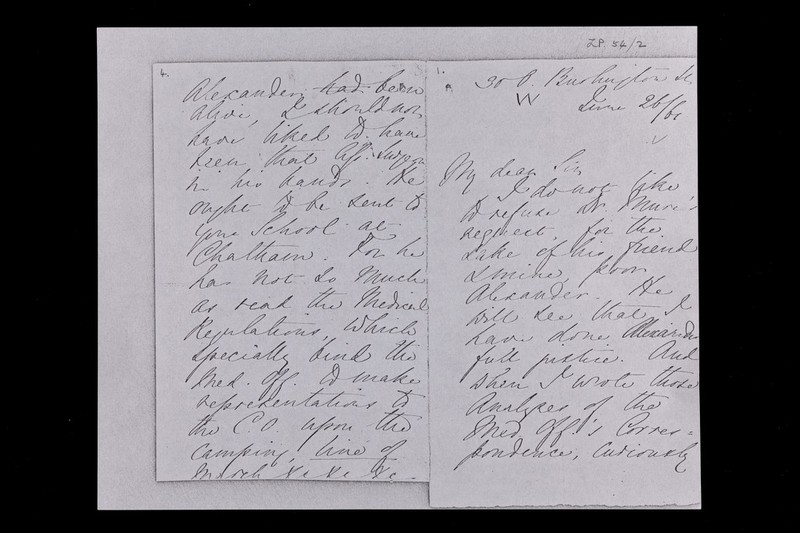 LP. 54/2
4.
Alexander had been
alive, I should not
have liked to have
seen that
in his hands. He
ought to be sent to
your School at
Chatham. For he
has not so much
as read the Medical
Regulations, which
specially bind the
Med. Off. to make
representations to
the C.O. upon the
camping, line of
March &c &c &c -
1.
30 O. Burlington St.
W
June 26/61
My dear Sir
I do not like
to refuse Dr. Muir's
request, for the
sake of his friend
& mine, poor
Alexander. He
will see that I
have done Alexander
full justice. And
when I wrote those
Analyses of the
Med Off.'s Corres=
pondence, curiously